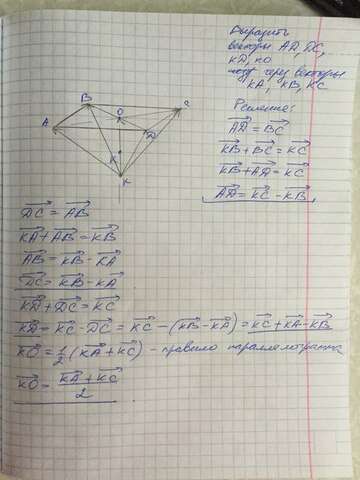 Выразить
векторы AD, DC,
KD, KO
через векторы
KA, KB, KC
Решение:
B
O
C
A
D
K
K
AD = BC
KB + BC = KC
KB + AD = KC
AD = KC - KB
DC = AB
KA + AB = KB
AB = KB - KA
DC = KB - KA
KD + DC = KC
KD = KC - DC = KC - (KB - KA) = KC + KA - KB
KO = 1/2 (KA + KC) - правило параллелограмма
KO = KA + KC / 2